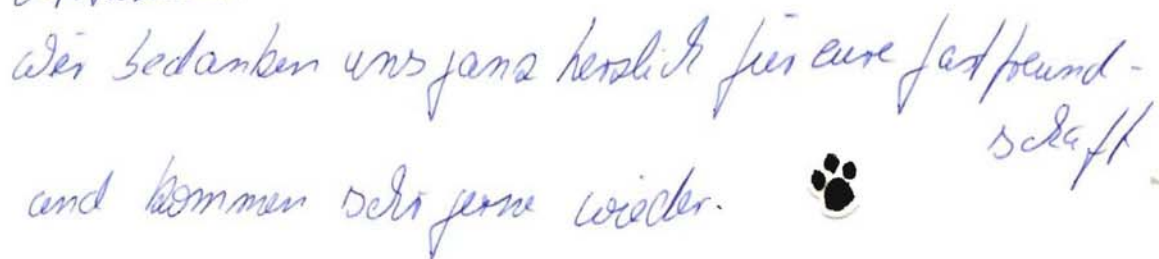 Wir bedanken uns ganz herzlich für eure Gastfreund-
schaft
und kommen sehr gerne wieder.